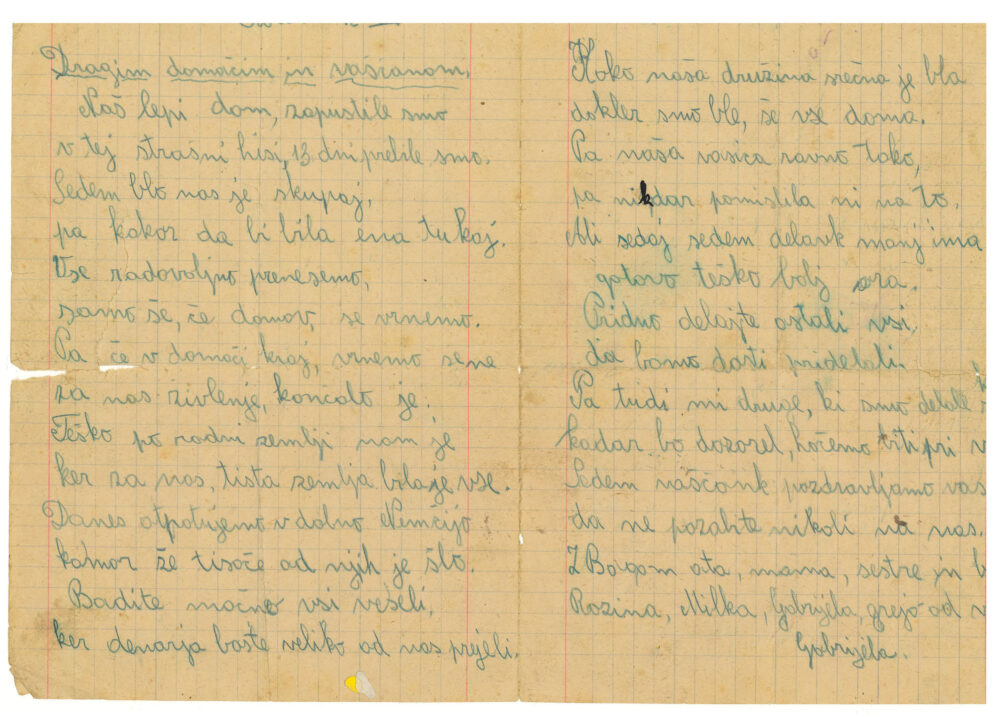 Dragim domačim in vaščanom.
Naš lepi dom, zapustile smo
v tej strašni hisi, 13 dni prebile smo.
Sedem blo nas je skupaj,
pa kakor da bi bila ena tukaj.
Vse radovoljno prenesemo,
samo še, če domov, se vrnemo.
Pa če v domači kraj, vrnemo se ne
za nas zivlenje, končalo je.
Teško po rodni zemlji nam je
ker za nas, tista zemlja bila je vse.
Danes otpotujemo v dalno Nemčijo
kamor že tisoče od njih je šlo.
Bodite močno vsi veseli,
ker denarja boste veliko od nas prejeli.
Koko naša družina srečna je bla
dokler smo ble, še vse doma.
Pa naša vasica ravno tako,
pa nikdar pomislila ni na to.
Ali sedaj sedem delavk manj ima
gotovo teško bolj ora.
Pridno delajte ostali vsi,
da bomo dosti pridelali.
Pa tudi mi druge, ki smo delale
kadar bo dozorel, hočemo biti pri
Sedem naščank pozdravljamo vas
da ne pozabte nikoli na nas.
Z Bogom ata, mama, sestre in
Rozina, Milka, Gabrijela, grejo od
Gabrijela.